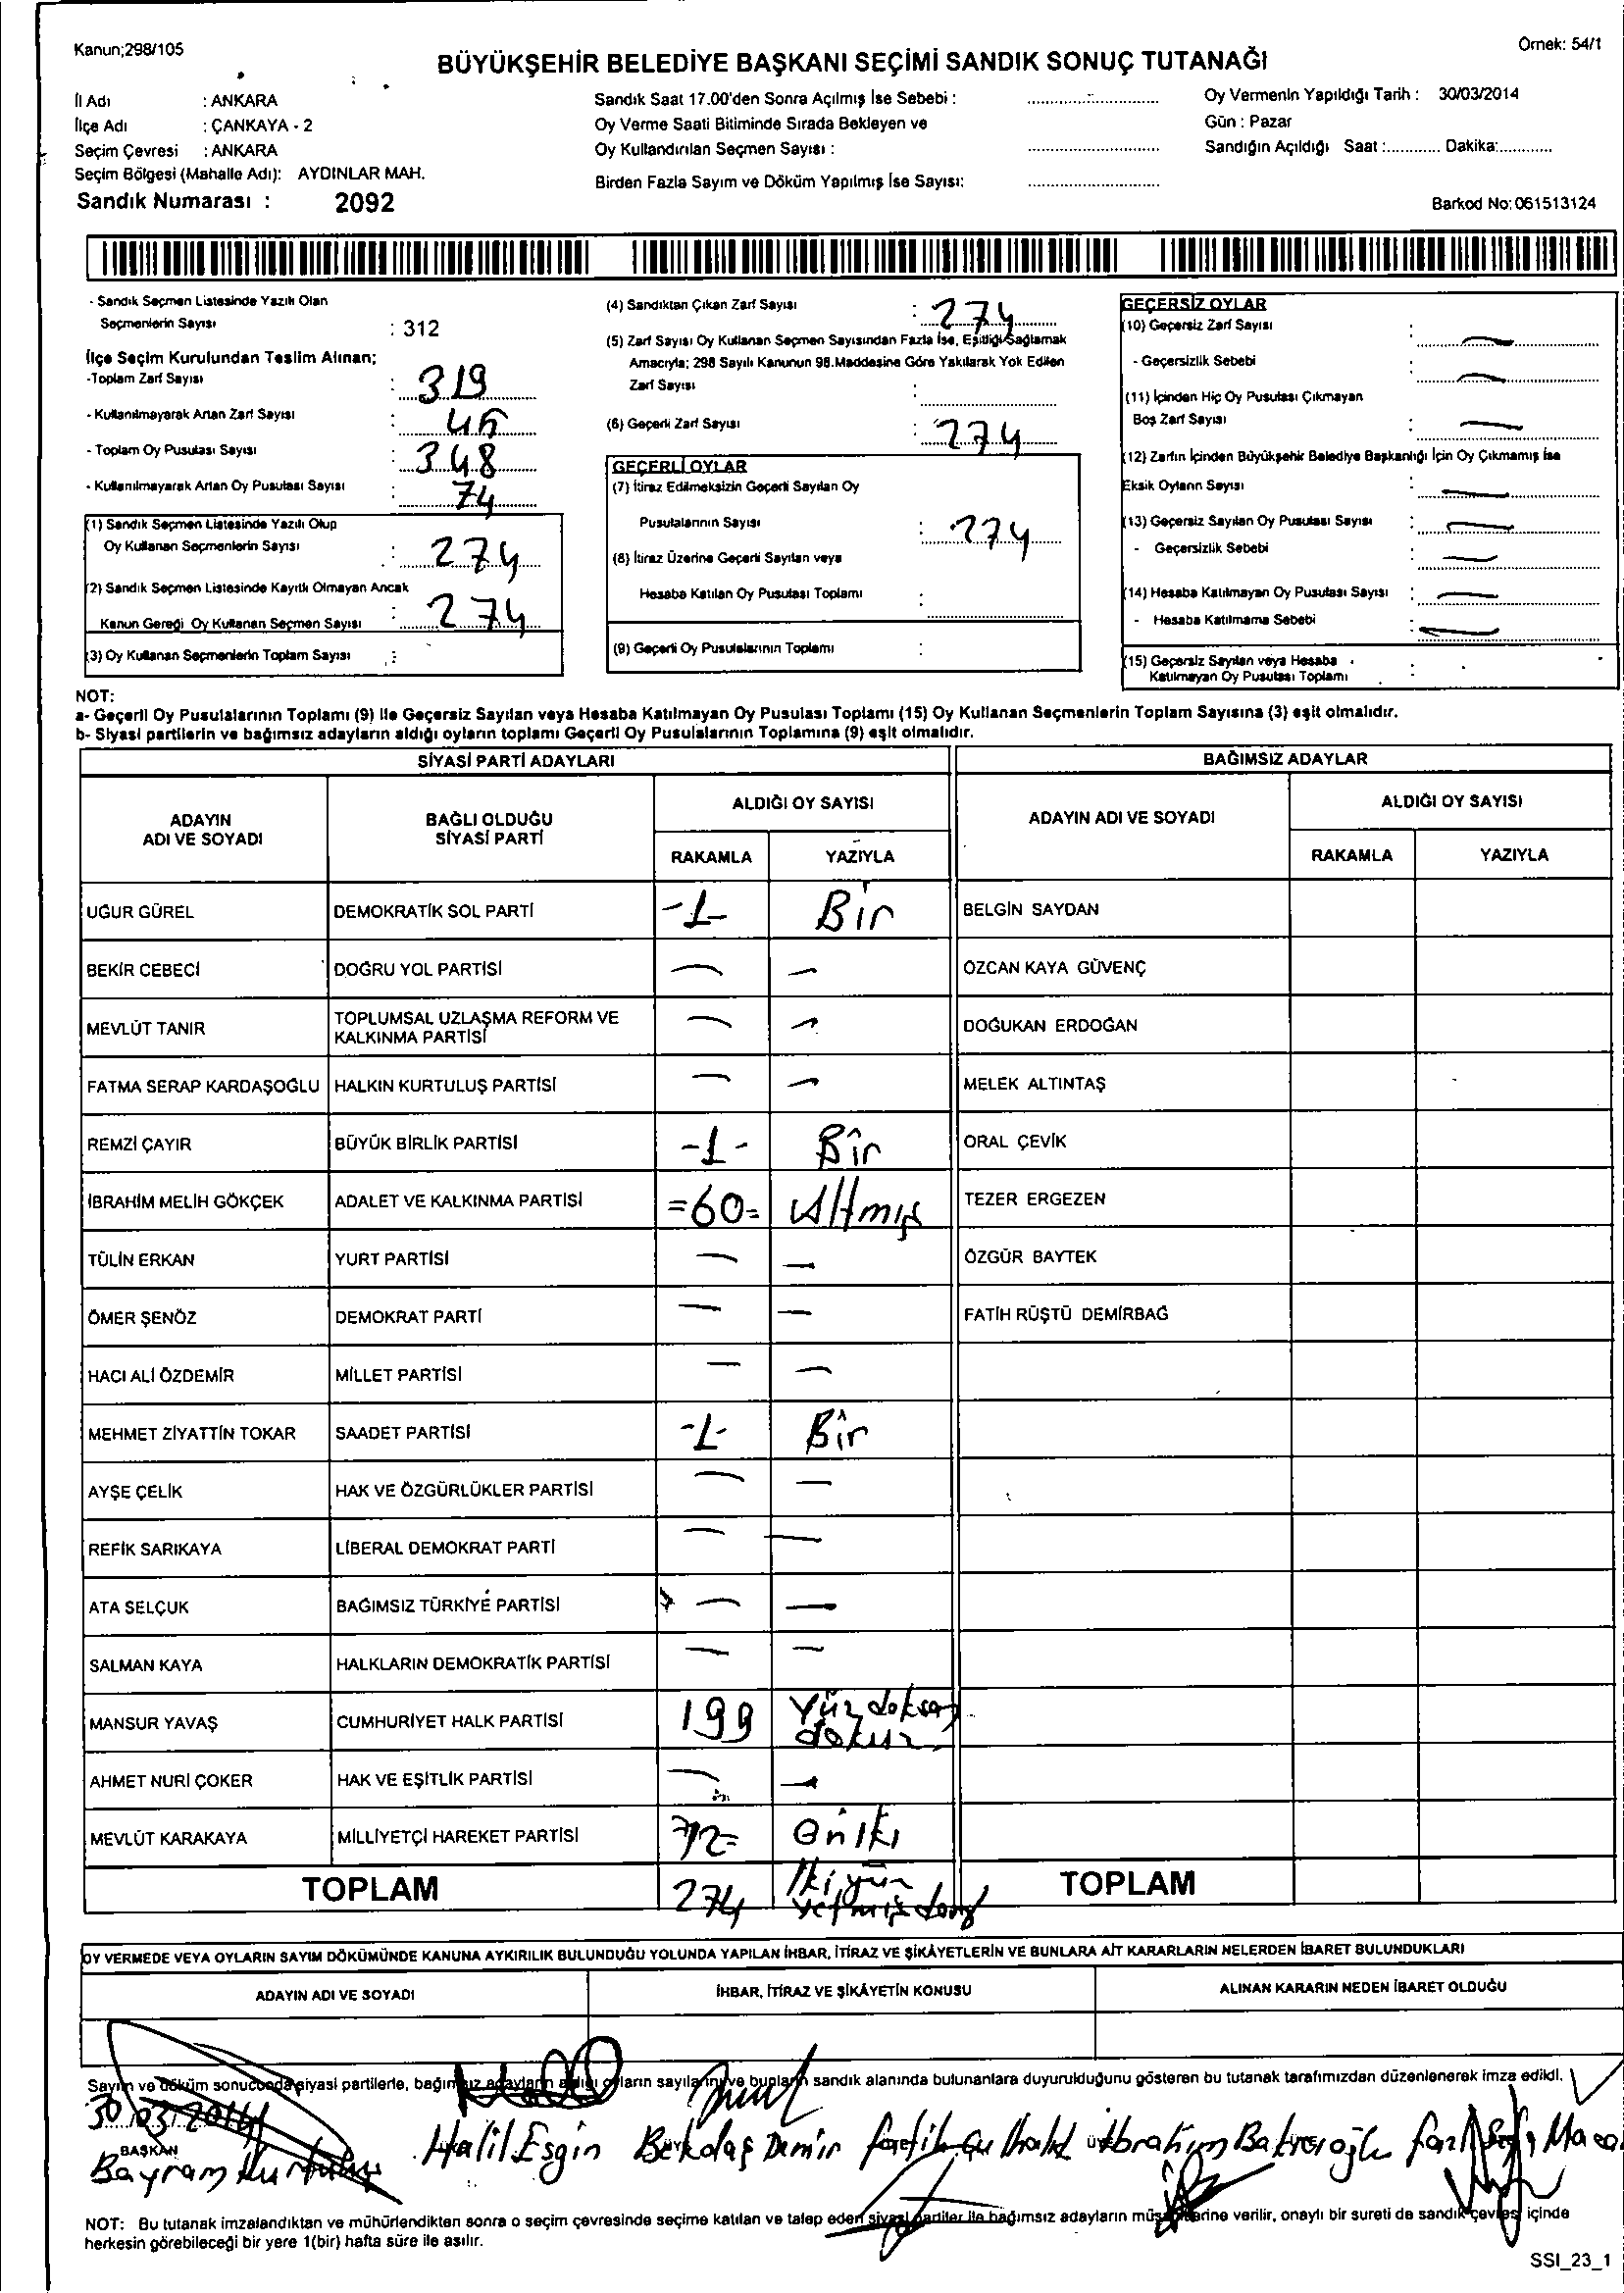 Kanun;298/105
Örnek: 54/1
BÜYÜKŞEHİR BELEDİYE BAŞKANI SEÇİMİ SANDIK SONUÇ TUTANAĞI
İl Adı : ANKARA
İlçe Adı : ÇANKAYA - 2
Seçim Çevresi : ANKARA
Seçim Bölgesi (Mahalle Adı): AYDINLAR MAH.
Sandık Numarası : 2092
Sandık Saat 17.00'den Sonra Açılmış İse Sebebi :
Oy Verme Saati Bitiminde Sırada Bekleyen ve
Oy Kullandırılan Seçmen Sayısı :
Birden Fazla Sayım ve Döküm Yapılmış İse Sayısı:
Oy Vermenin Yapıldığı Tarih : 30/03/2014
Gün : Pazar
Sandığın Açıldığı Saat :............ Dakika:............
Barkod No: 061513124
- Sandık Seçmen Listesinde Yazılı Olan
Seçmenlerin Sayısı : 312
İlçe Seçim Kurulundan Teslim Alınan;
-Toplam Zarf Sayısı : 319
- Kullanılmayarak Artan Zarf Sayısı : 45
- Toplam Oy Pusulası Sayısı : 348
- Kullanılmayarak Artan Oy Pusulası Sayısı : 74
(1) Sandık Seçmen Listesinde Yazılı Olup
Oy Kullanan Seçmenlerin Sayısı : 274
(2) Sandık Seçmen Listesinde Kayıtlı Olmayan Ancak
Kanun Gereği Oy Kullanan Seçmen Sayısı : 274
(3) Oy Kullanan Seçmenlerin Toplam Sayısı :
(4) Sandıktan Çıkan Zarf Sayısı : 274
(5) Zarf Sayısı Oy Kullanan Seçmen Sayısından Fazla İse, Eşitliği Sağlamak
Amacıyla; 298 Sayılı Kanunun 98.Maddesine Göre Yakılarak Yok Edilen
Zarf Sayısı :
(6) Geçerli Zarf Sayısı : 274
GEÇERLİ OYLAR
(7) İtiraz Edilmeksizin Geçerli Sayılan Oy
Pusulalarının Sayısı : 274
(8) İtiraz Üzerine Geçerli Sayılan veya
Hesaba Katılan Oy Pusulası Toplamı :
(9) Geçerli Oy Pusulalarının Toplamı :
GEÇERSİZ OYLAR
(10) Geçersiz Zarf Sayısı : —
- Geçersizlik Sebebi : —
(11) İçinden Hiç Oy Pusulası Çıkmayan
Boş Zarf Sayısı : —
(12) Zarfın İçinden Büyükşehir Belediye Başkanlığı İçin Oy Çıkmamış İse
Eksik Oyların Sayısı : —
(13) Geçersiz Sayılan Oy Pusulası Sayısı : —
- Geçersizlik Sebebi : —
(14) Hesaba Katılmayan Oy Pusulası Sayısı : —
- Hesaba Katılmama Sebebi : —
(15) Geçersiz Sayılan veya Hesaba
Katılmayan Oy Pusulası Toplamı :
NOT:
a- Geçerli Oy Pusulalarının Toplamı (9) ile Geçersiz Sayılan veya Hesaba Katılmayan Oy Pusulası Toplamı (15) Oy Kullanan Seçmenlerin Toplam Sayısına (3) eşit olmalıdır.
b- Siyasi partilerin ve bağımsız adayların aldığı oyların toplamı Geçerli Oy Pusulalarının Toplamına (9) eşit olmalıdır.
SİYASİ PARTİ ADAYLARI BAĞIMSIZ ADAYLAR
ADAYIN ADI VE SOYADI
BAĞLI OLDUĞU SİYASİ PARTİ
ALDIĞI OY SAYISI
RAKAMLA YAZIYLA
ADAYIN ADI VE SOYADI
ALDIĞI OY SAYISI
RAKAMLA YAZIYLA
UĞUR GÜREL DEMOKRATİK SOL PARTİ -1- Bir BELGİN SAYDAN
BEKİR CEBECİ DOĞRU YOL PARTİSİ — — ÖZCAN KAYA GÜVENÇ
MEVLÜT TANIR TOPLUMSAL UZLAŞMA REFORM VE KALKINMA PARTİSİ — — DOĞUKAN ERDOĞAN
FATMA SERAP KARDAŞOĞLU HALKIN KURTULUŞ PARTİSİ — — MELEK ALTINTAŞ
REMZİ ÇAYIR BÜYÜK BİRLİK PARTİSİ -1- Bir ORAL ÇEVİK
İBRAHİM MELİH GÖKÇEK ADALET VE KALKINMA PARTİSİ =60= Altmış TEZER ERGEZEN
TÜLİN ERKAN YURT PARTİSİ — — ÖZGÜR BAYTEK
ÖMER ŞENÖZ DEMOKRAT PARTİ — — FATİH RÜŞTÜ DEMİRBAĞ
HACI ALİ ÖZDEMİR MİLLET PARTİSİ — —
MEHMET ZİYATTİN TOKAR SAADET PARTİSİ -1- Bir
AYŞE ÇELİK HAK VE ÖZGÜRLÜKLER PARTİSİ — —
REFİK SARIKAYA LİBERAL DEMOKRAT PARTİ — —
ATA SELÇUK BAĞIMSIZ TÜRKİYE PARTİSİ — —
SALMAN KAYA HALKLARIN DEMOKRATİK PARTİSİ — —
MANSUR YAVAŞ CUMHURİYET HALK PARTİSİ 199 Yüz doksan dokuz
AHMET NURİ ÇOKER HAK VE EŞİTLİK PARTİSİ — —
MEVLÜT KARAKAYA MİLLİYETÇİ HAREKET PARTİSİ 12= Oniki
TOPLAM 274 İkiyüz yetmiş dört TOPLAM
OY VERMEDE VEYA OYLARIN SAYIM DÖKÜMÜNDE KANUNA AYKIRILIK BULUNDUĞU YOLUNDA YAPILAN İHBAR, İTİRAZ VE ŞİKÂYETLERİN VE BUNLARA AİT KARARLARIN NELERDEN İBARET BULUNDUKLARI
ADAYIN ADI VE SOYADI İHBAR, İTİRAZ VE ŞİKÂYETİN KONUSU ALINAN KARARIN NEDEN İBARET OLDUĞU
Sayım ve döküm sonucunda siyasi partilerle, bağımsız adayların aldığı oyların sayılarını ve bunların sandık alanında bulunanlara duyurulduğunu gösteren bu tutanak tarafımızdan düzenlenerek imza edildi.
30/03/2014
BAŞKAN
Bayram Kurtuluş Halil Esgin Bektaş Demir İbrahim
NOT: Bu tutanak imzalandıktan ve mühürlendikten sonra o seçim çevresinde seçime katılan ve talep eden siyasi partiler ile bağımsız adayların müşahitlerine verilir, onaylı bir sureti de sandık çevresi içinde
herkesin görebileceği bir yere 1(bir) hafta süre ile asılır.
SSI_23_1